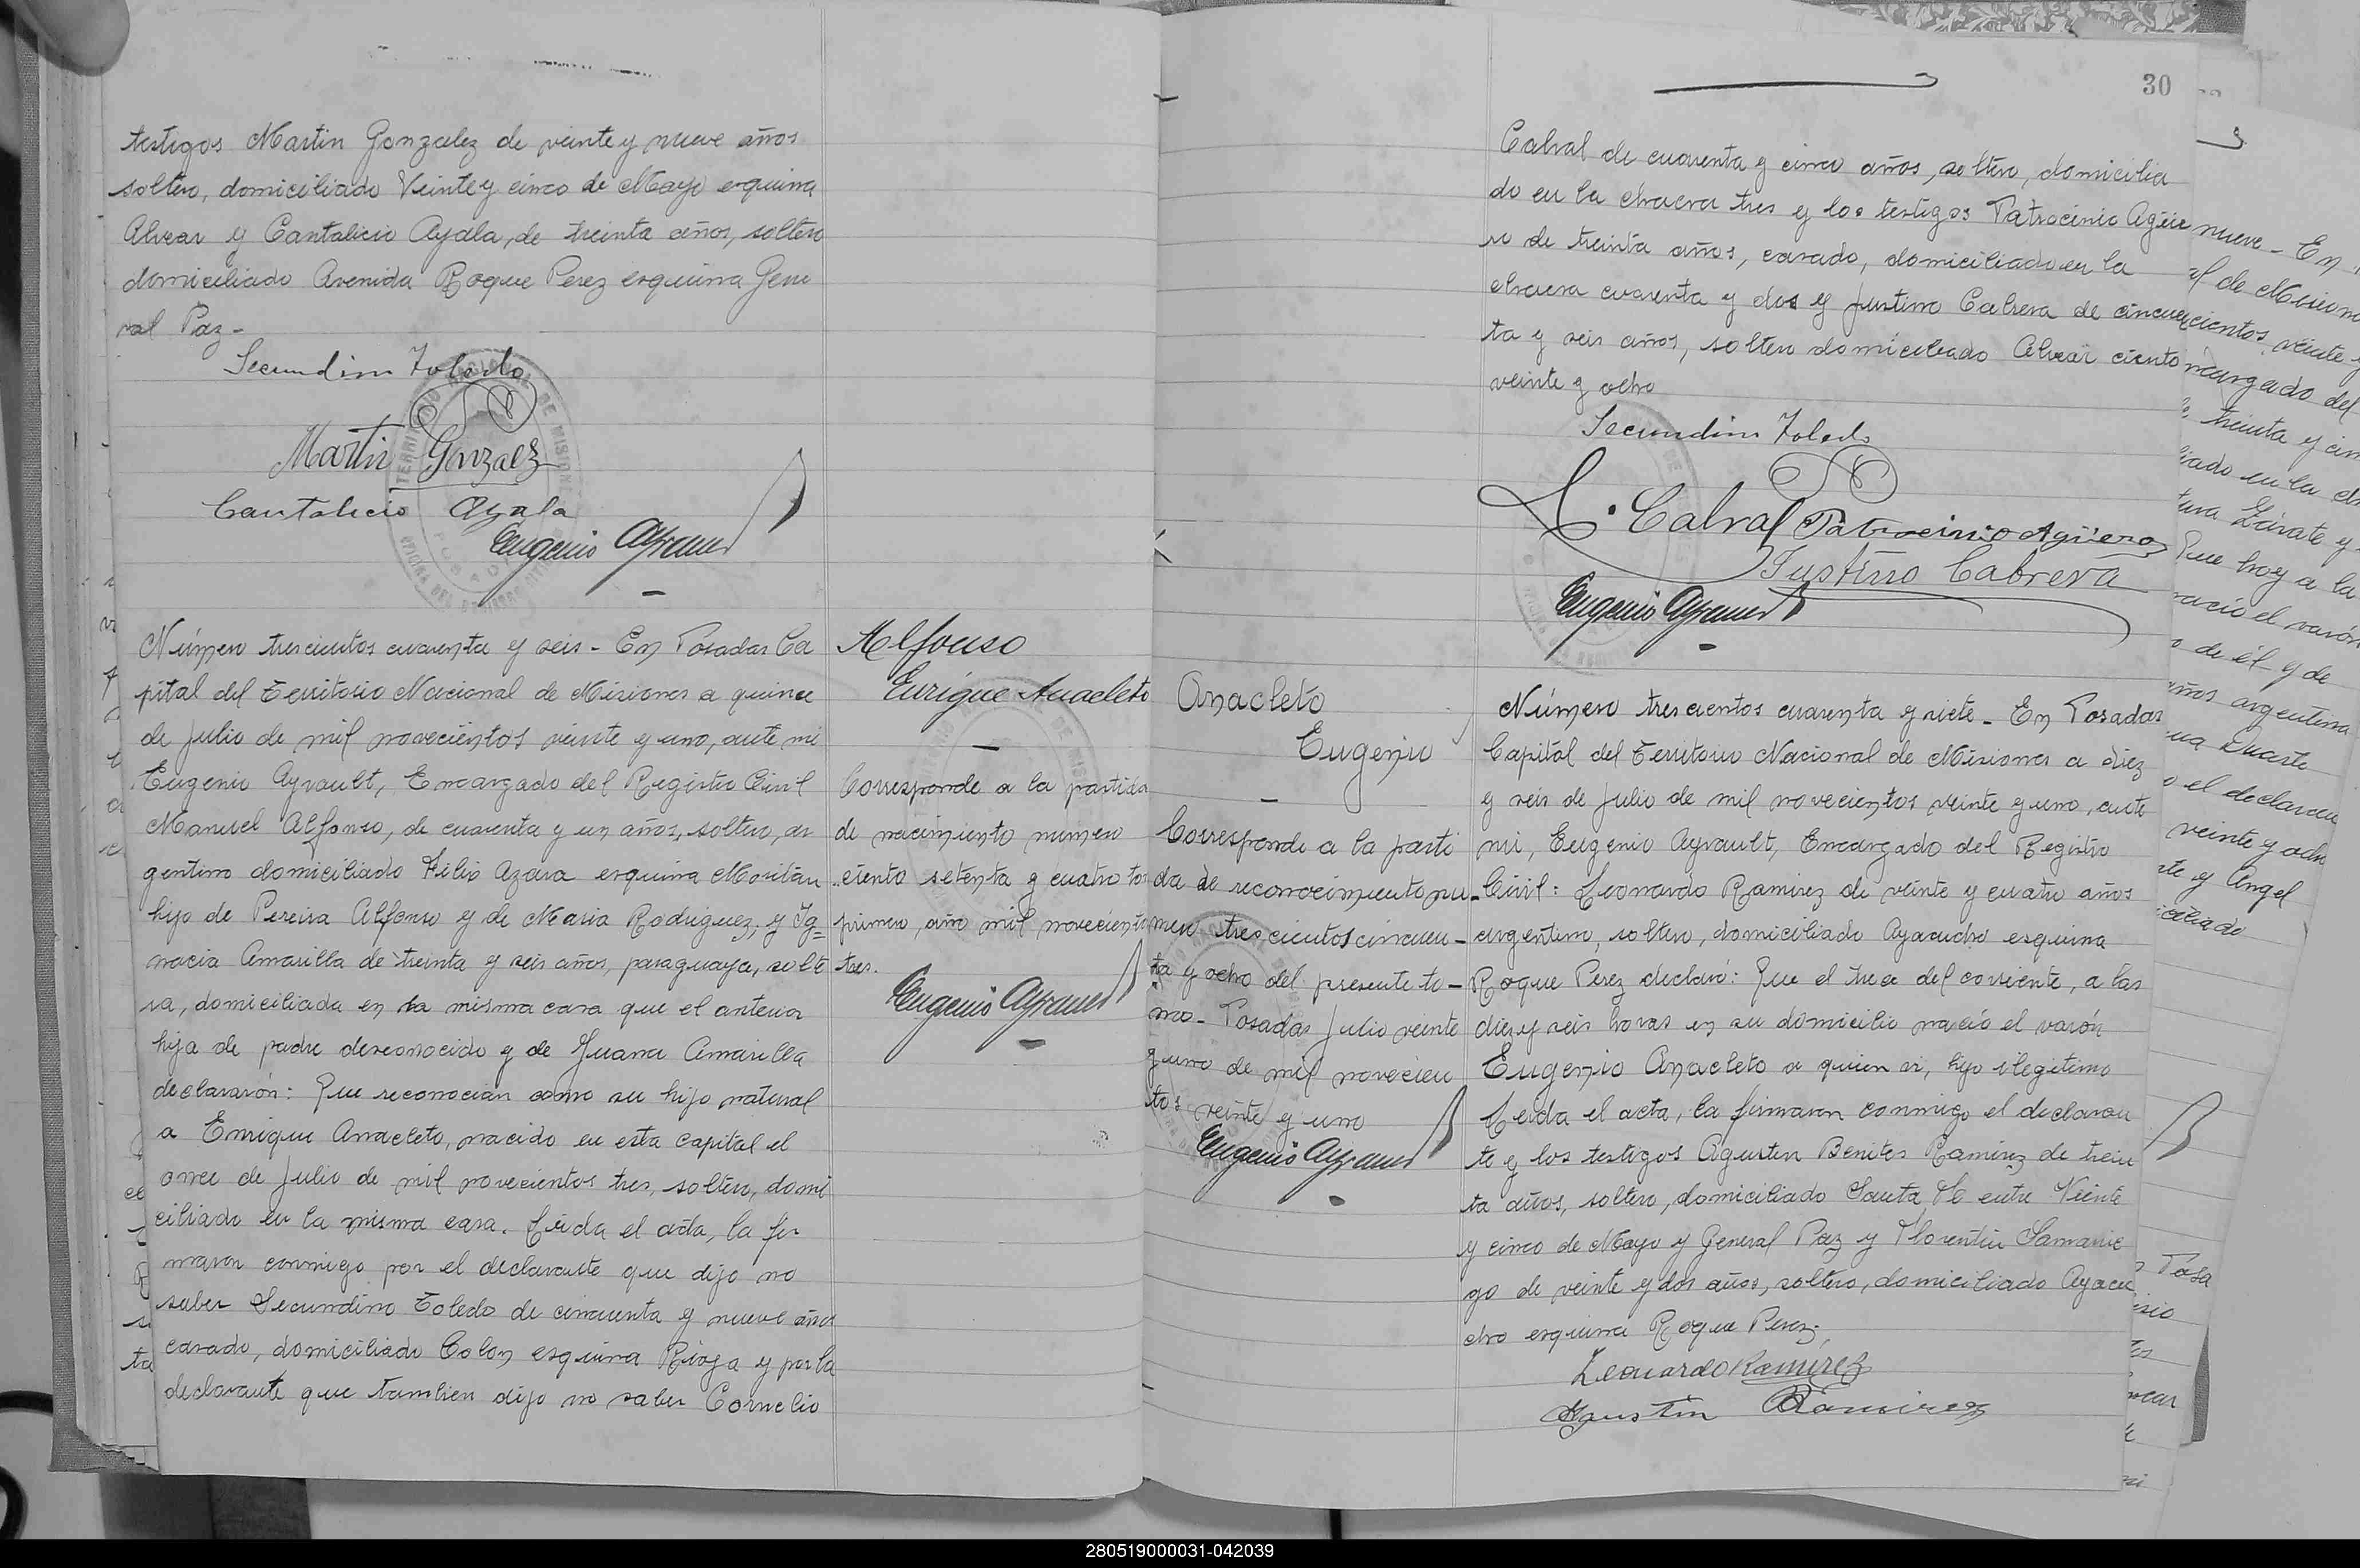 testigos Martin Gonzalez de veinte y nueve años
soltero, domiciliado Veinte y cinco de Mayo esquina
Alvear y Cantalicio Ayala, de treinta años, soltero
domiciliado Avenida Roque Perez esquina Gene
ral Paz -
Secundino Toledo
Martin Gonzalez
Cantalicio Ayala
Eugenio Ayrault
Número trescientos cuarenta y seis - En Posadas Ca
pital del Territorio Nacional de Misiones a quince
de Julio de mil novecientos veinte y uno, ante mi
Eugenio Ayrault, Encargado del Registro Civil
Manuel Alfonso, de cuarenta y un años, soltero, ar
gentino domiciliado Felix Azara esquina
hijo de Pereira Alfonso y de Maria Rodriguez, y Ig=
nacia Amarilla de treinta y seis años, paraguaya, solte
ra, domiciliada en la misma casa que el anterior
hija de padre desconocido y de Juana Amarilla
declararón: Que reconocian como su hijo natural
a Enrique Anacleto, nacido en esta capital el
once de Julio de mil novecientos tres, soltero, domi
ciliado en la misma casa. Leida el acta, la fir
maron conmigo por el declarante que dijo no
saber Secundino Toledo de cincuenta y nueve años
casado, domiciliado Colon esquina Rioja y por la
declarante que tambien dijo no saber Cornelio
Alfonso
Enrique Anacleto
Corresponde a la partida
de nacimiento numero
ciento setenta y cuatro to
primero, año mil novecientos
tres.
Eugenio Ayrault
30
Cabral de cuarenta y cinco años, soltero, domicilia
do en la chacra tres y los testigos Patrocinio Agüe
ro de treinta años, casado, domiciliado en la
chacra cuarenta y dos y Justino Cabrera de cincuen
ta y seis años, soltero domiciliado Alvear ciento
veinte y ocho
Secundino Toledo
C. Cabral Patrocinio Agüero
Justino Cabrera
Eugenio Ayrault
Anacleto
Eugenio
Corresponde a la parti
da de reconocimiento nu-
mero trescientos cincuen-
ta y ocho del presente to-
mo - Posadas Julio veinte
y uno de mil novecien
tos veinte y uno
Eugenio Ayrault
Número trescientos cuarenta y siete - En Posadas
Capital del Territorio Nacional de Misiones a diez
y seis de Julio de mil novecientos veinte y uno, ante
mi, Eugenio Ayrault, Encargado del Registro
Civil: Leonardo Ramirez de veinte y cuatro años
argentino, soltero, domiciliado Ayacucho esquina
Roque Perez declaró: Que el trece del corriente, a las
diez y seis horas en su domicilio nació el varón
Eugenio Anacleto a quien vi, hijo ilegitimo
Leida el acta, la firmaron conmigo el declaran
te y los testigos Agustin Benites Ramirez de trein
ta años, soltero, domiciliado Santa Fe entre Veinte
y cinco de Mayo y General Paz y Florentin Samanie
go de veinte y dos años, soltero, domiciliado Ayacu
cho esquina Roque Perez.
Leonardo Ramirez
Agustin B Ramirez
nueve - En
al de Misiones
cientos veinte y
ncargado del
treinta y cin
iado en la ch
Zárate y
Que hoy a la
nació el varón
o de él y de
años argentina
na Duarte
o el declaran
veinte y ocho
te y Angel
iciliado
Posa
280519000031-042039